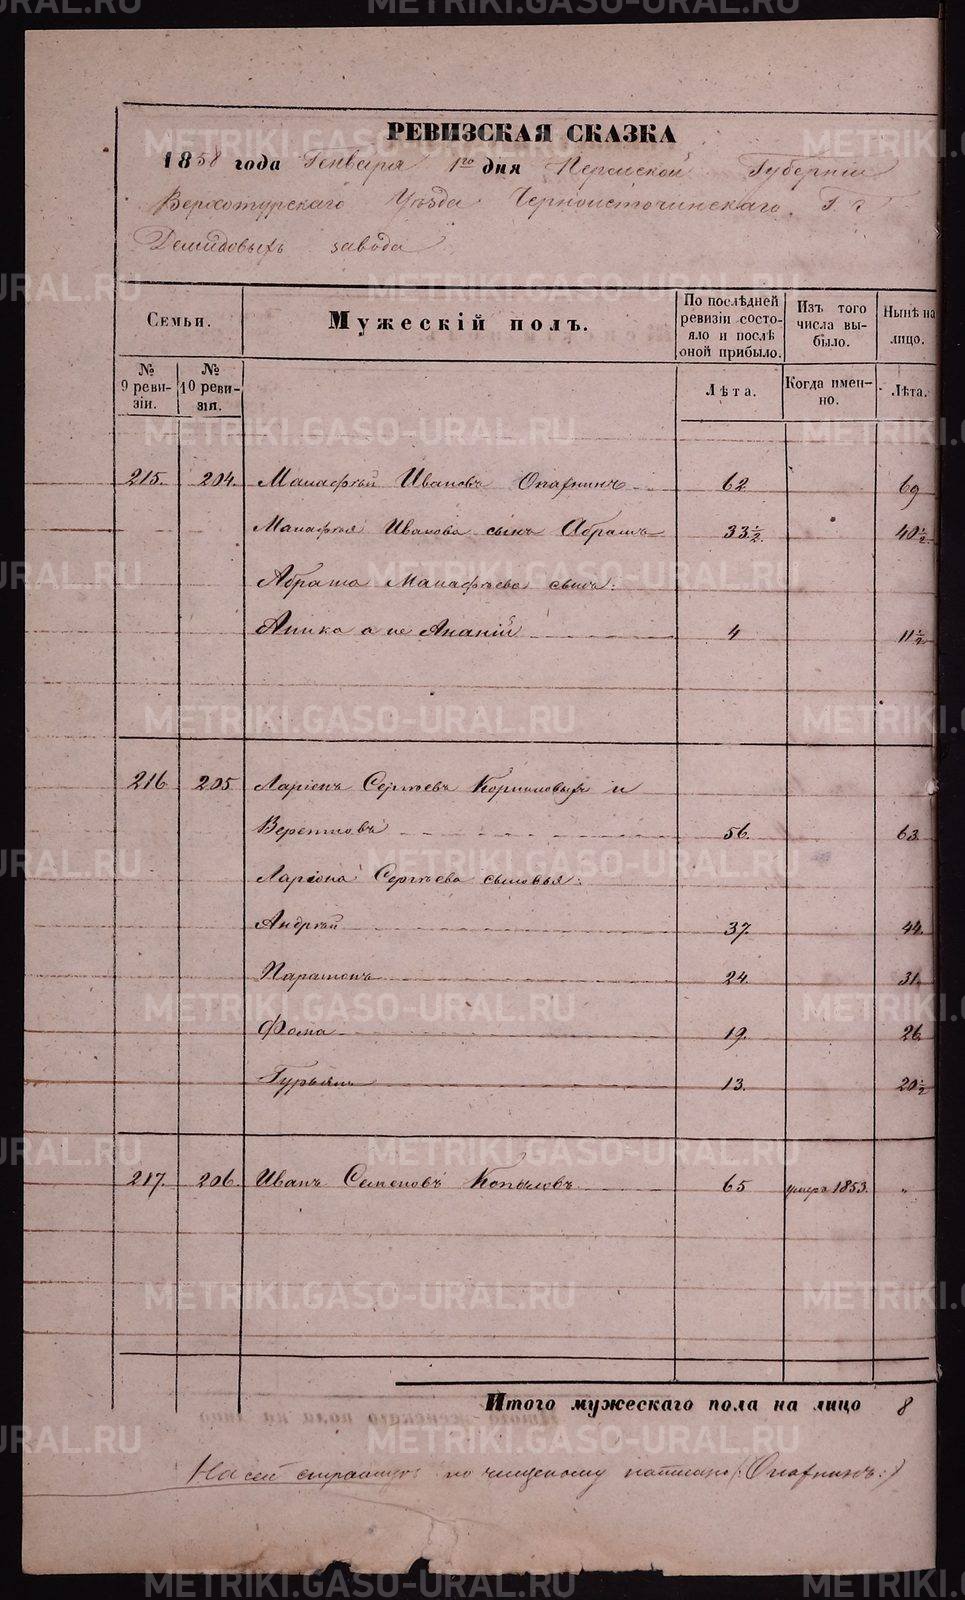 РЕВИЗСКАЯ СКАЗКА
1858 года Генваря 1го дня Пермской Губернiи
Верхотурскаго Уѣзда Черноисточинскаго Г. г.
Демидовыхъ завода
Семьи. Мужескiй полъ. По послѣдней ревизiи состояло и послѣ оной прибыло. Изъ того числа выбыло. Нынѣ на лицо.
№ 9 ревизiи. № 10 ревизiя. Лѣта. Когда именно. Лѣта.
215. 204. Малафѣй Ивановъ 62. 69
Малафѣя Иванова сынъ Абрамъ 33½. 40½
Абрама Малафѣева сынъ:
Аника а не Ананiй 4 11½
216 205 Ларiонъ Сергѣевъ и
56. 63
Ларiона Сергѣева сыновья:
Андрѣй 37. 44.
Парамонъ 24. 31.
Фома 19. 26
Гурьянъ 13. 20½
217. 206. Иванъ Семеновъ Копыловъ 65 умеръ 1853. „
Итого мужескаго пола на лицо 8
На сей страницѣ по чищеному написано
METRIKI.GASO-URAL.RU